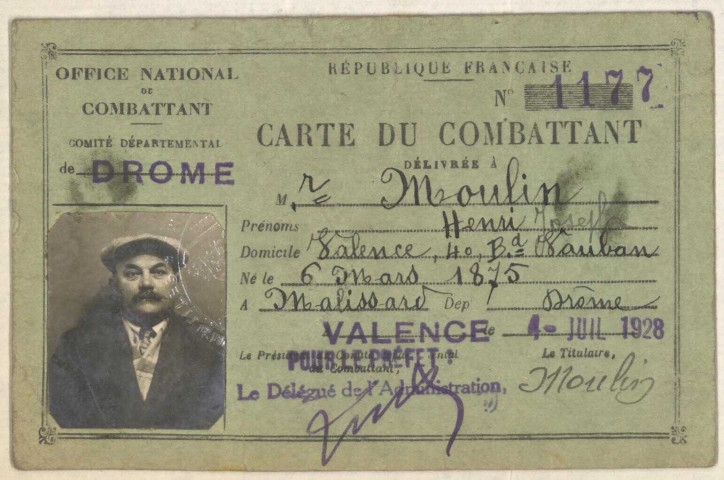 OFFICE NATIONAL
DU
COMBATTANT
COMITÉ DÉPARTEMENTAL
de DROME
RÉPUBLIQUE FRANÇAISE
N° 1177
CARTE DU COMBATTANT
DÉLIVRÉE À
Mr Moulin
Prénoms Henri Joseph
Domicile Valence, 40, Bd Vauban
Né le 6 Mars 1875
A Malissard Dep Drôme
VALENCE le 4 - JUIL 1928
Le Président du Comité Départemental
du Combattant,
POUR LE PREFET:
Le Délégué de l'Administration,
Le Titulaire,
Moulin